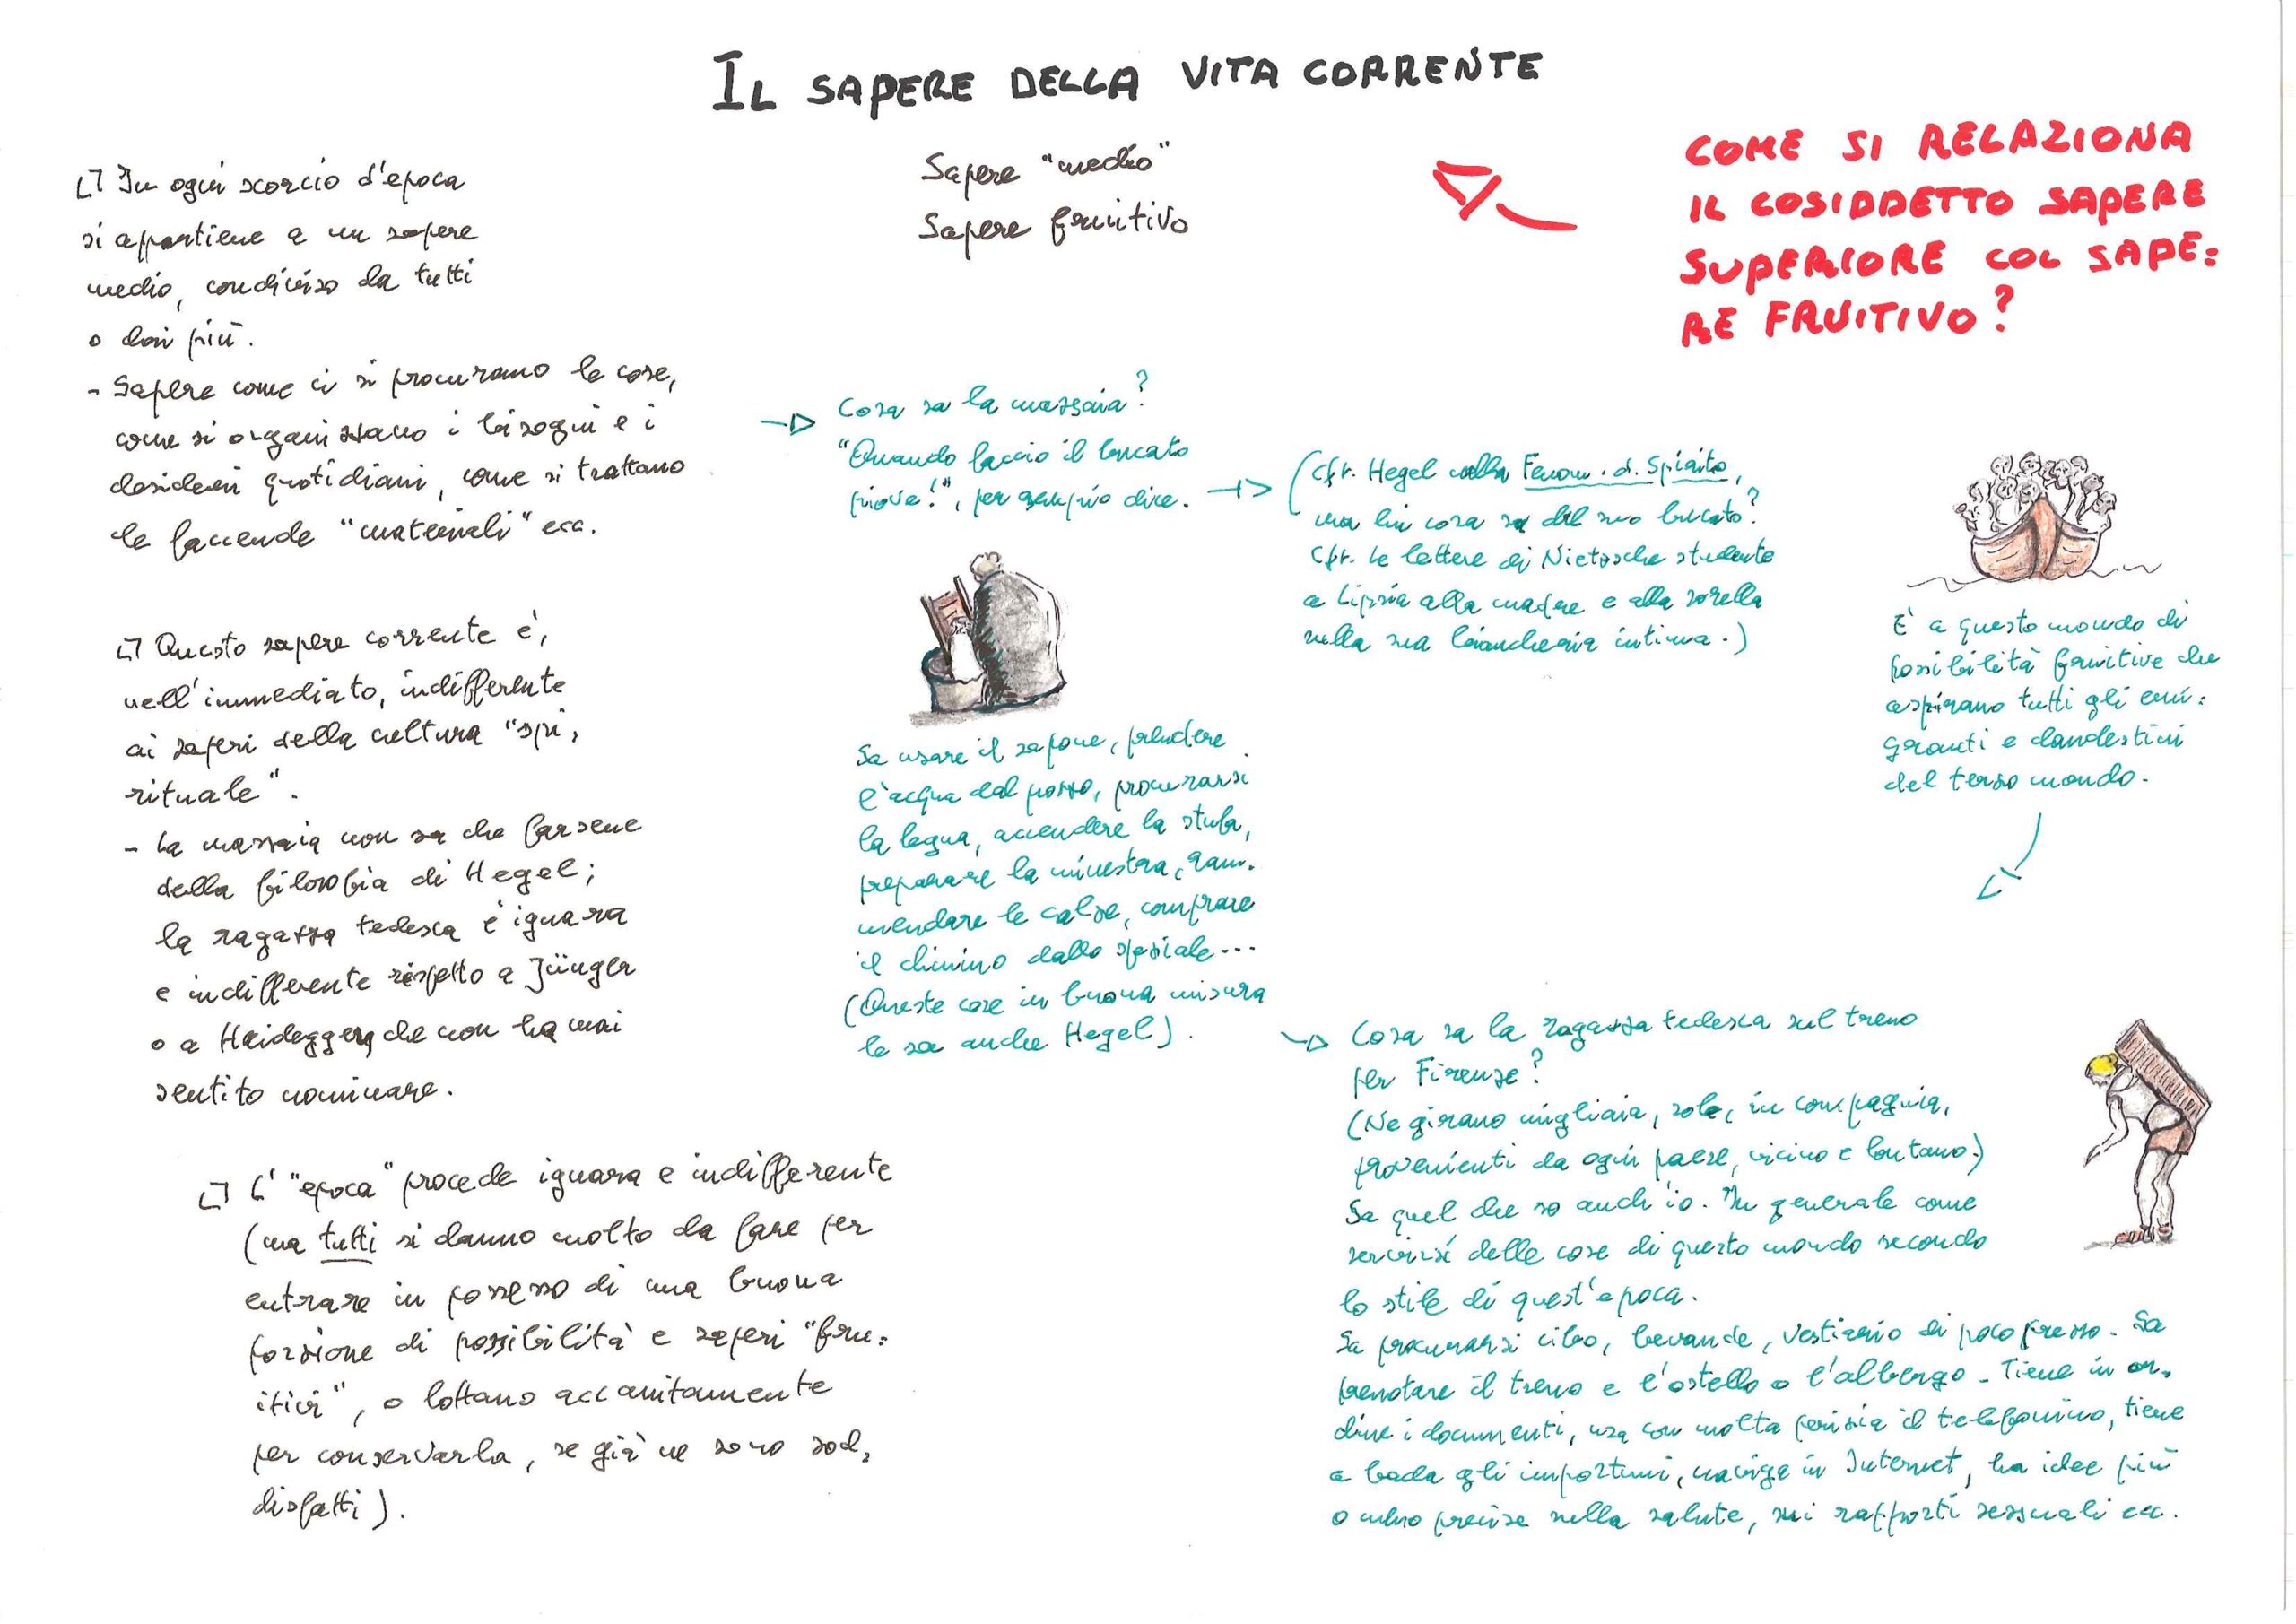 IL SAPERE DELLA VITA CORRENTE
Sapere "medio"
Sapere fruitivo
COME SI RELAZIONA
IL COSIDDETTO SAPERE
SUPERIORE COL SAPE=
RE FRUITIVO?
In ogni scorcio d'epoca
si appartiene a un sapere
medio, condiviso da tutti
o dai più.
- Sapere come ci si procurano le cose,
come si organizzano i bisogni e i
desideri quotidiani, come si trattano
le faccende "materiali" ecc.
Questo sapere corrente è,
nell'immediato, indifferente
ai saperi della cultura "spi=
rituale".
- La massaia non sa che farsene
della filosofia di Hegel;
la ragazza tedesca è ignara
e indifferente rispetto a Jünger
o a Heidegger, che non ha mai
sentito nominare.
L'"epoca" procede ignara e indifferente
(ma tutti si danno molto da fare per
entrare in possesso di una buona
porzione di possibilità e saperi "fru=
itivi", o lottano accanitamente
per conservarla, se già ne sono sod=
disfatti).
Cosa sa la massaia?
"Quando faccio il bucato
piove!", per esempio dice.
(Cfr. Hegel nella Fenom. d. Spirito,
ma lui cosa sa del suo bucato?
Cfr. le lettere di Nietzsche studente
a Lipsia alla madre e alla sorella
sulla sua biancheria intima.)
Sa usare il sapone, prendere
l'acqua dal pozzo, procurarsi
la legna, accendere la stufa,
preparare la minestra, ram=
mendare le calze, comprare
il chinino dallo speziale...
(Queste cose in buona misura
le sa anche Hegel).
È a questo mondo di
possibilità fruitive che
aspirano tutti gli emi=
granti e clandestini
del terzo mondo.
Cosa sa la ragazza tedesca sul treno
per Firenze?
(Ne girano migliaia, sole, in compagnia,
provenienti da ogni paese, vicino e lontano.)
Sa quel che so anch'io. In generale come
servirsi delle cose di questo mondo secondo
lo stile di quest'epoca.
Sa procurarsi cibo, bevande, vestiario di poco prezzo. Sa
prenotare il treno e l'ostello o l'albergo. Tiene in or=
dine i documenti, usa con molta perizia il telefonino, tiene
a bada gli importuni, naviga in Internet, ha idee più
o meno precise sulla salute, sui rapporti sessuali ecc.